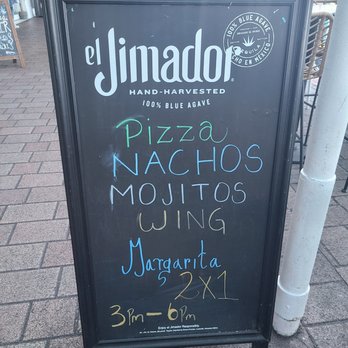 el Jimador
100% BLUE AGAVE
TEQUILA
HECHO EN MEXICO
HAND-HARVESTED
100% BLUE AGAVE
Pizza
NACHOS
MOJITOS
WING
Margarita
2X1
3Pm-6Pm
Enjoy el Jimador Responsibly.